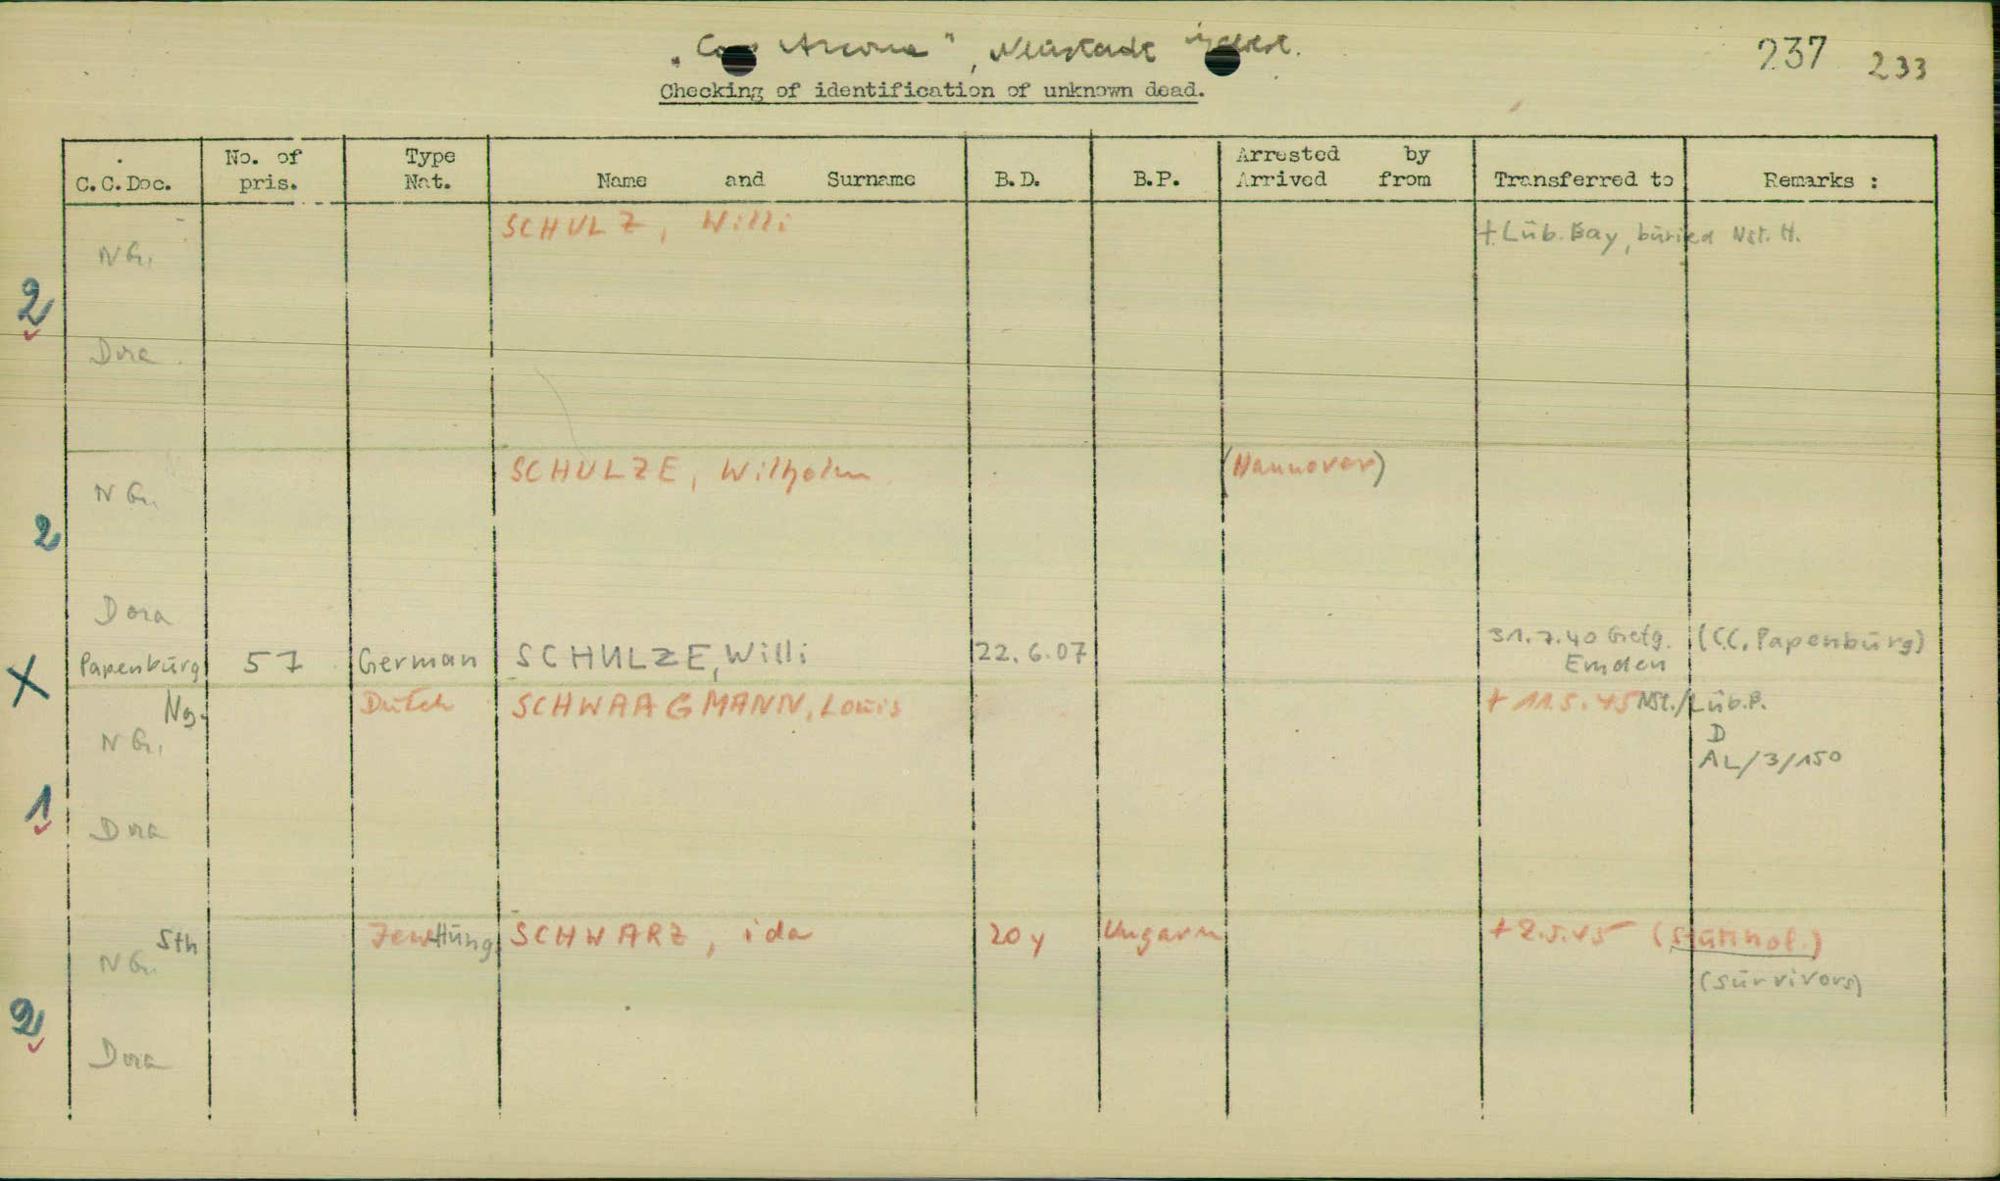 "Cap Arcona", Neustadt i/Holst.
237 233
Checking of identification of unknown dead.
C.C.Doc. No. of pris. Type Nat. Name and Surname B.D. B.P. Arrested by Arrived from Transferred to Remarks :
SCHULZ, Willi + Lüb. Bay, buried Nst. H.
NG.
2
Dora
SCHULZE, Wilhelm (Hannover)
NG.
2
Dora
X Papenburg 57 German SCHULZE, Willi 22.6.07 31.7.40 Gefg. Emden (C.C. Papenburg)
Ng. Dutch SCHWAAGMANN, Louis + 11.5.45 Nst./Lüb.B.
NG. D
AL/3/150
1
Dora
Sth Jew Hung. SCHWARZ, ida 20 y Ungarn + 2.5.45 (Stutthof.)
NG. (survivors)
2
Dora